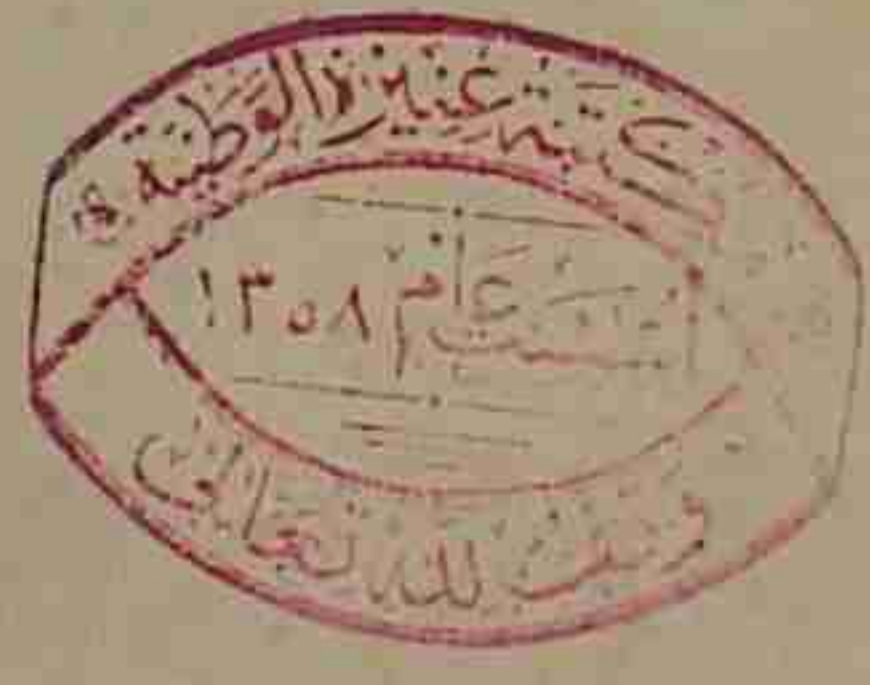 مكتبة عنيزة الوطنية
أسست عام ١٣٥٨
وقف لله تعالى